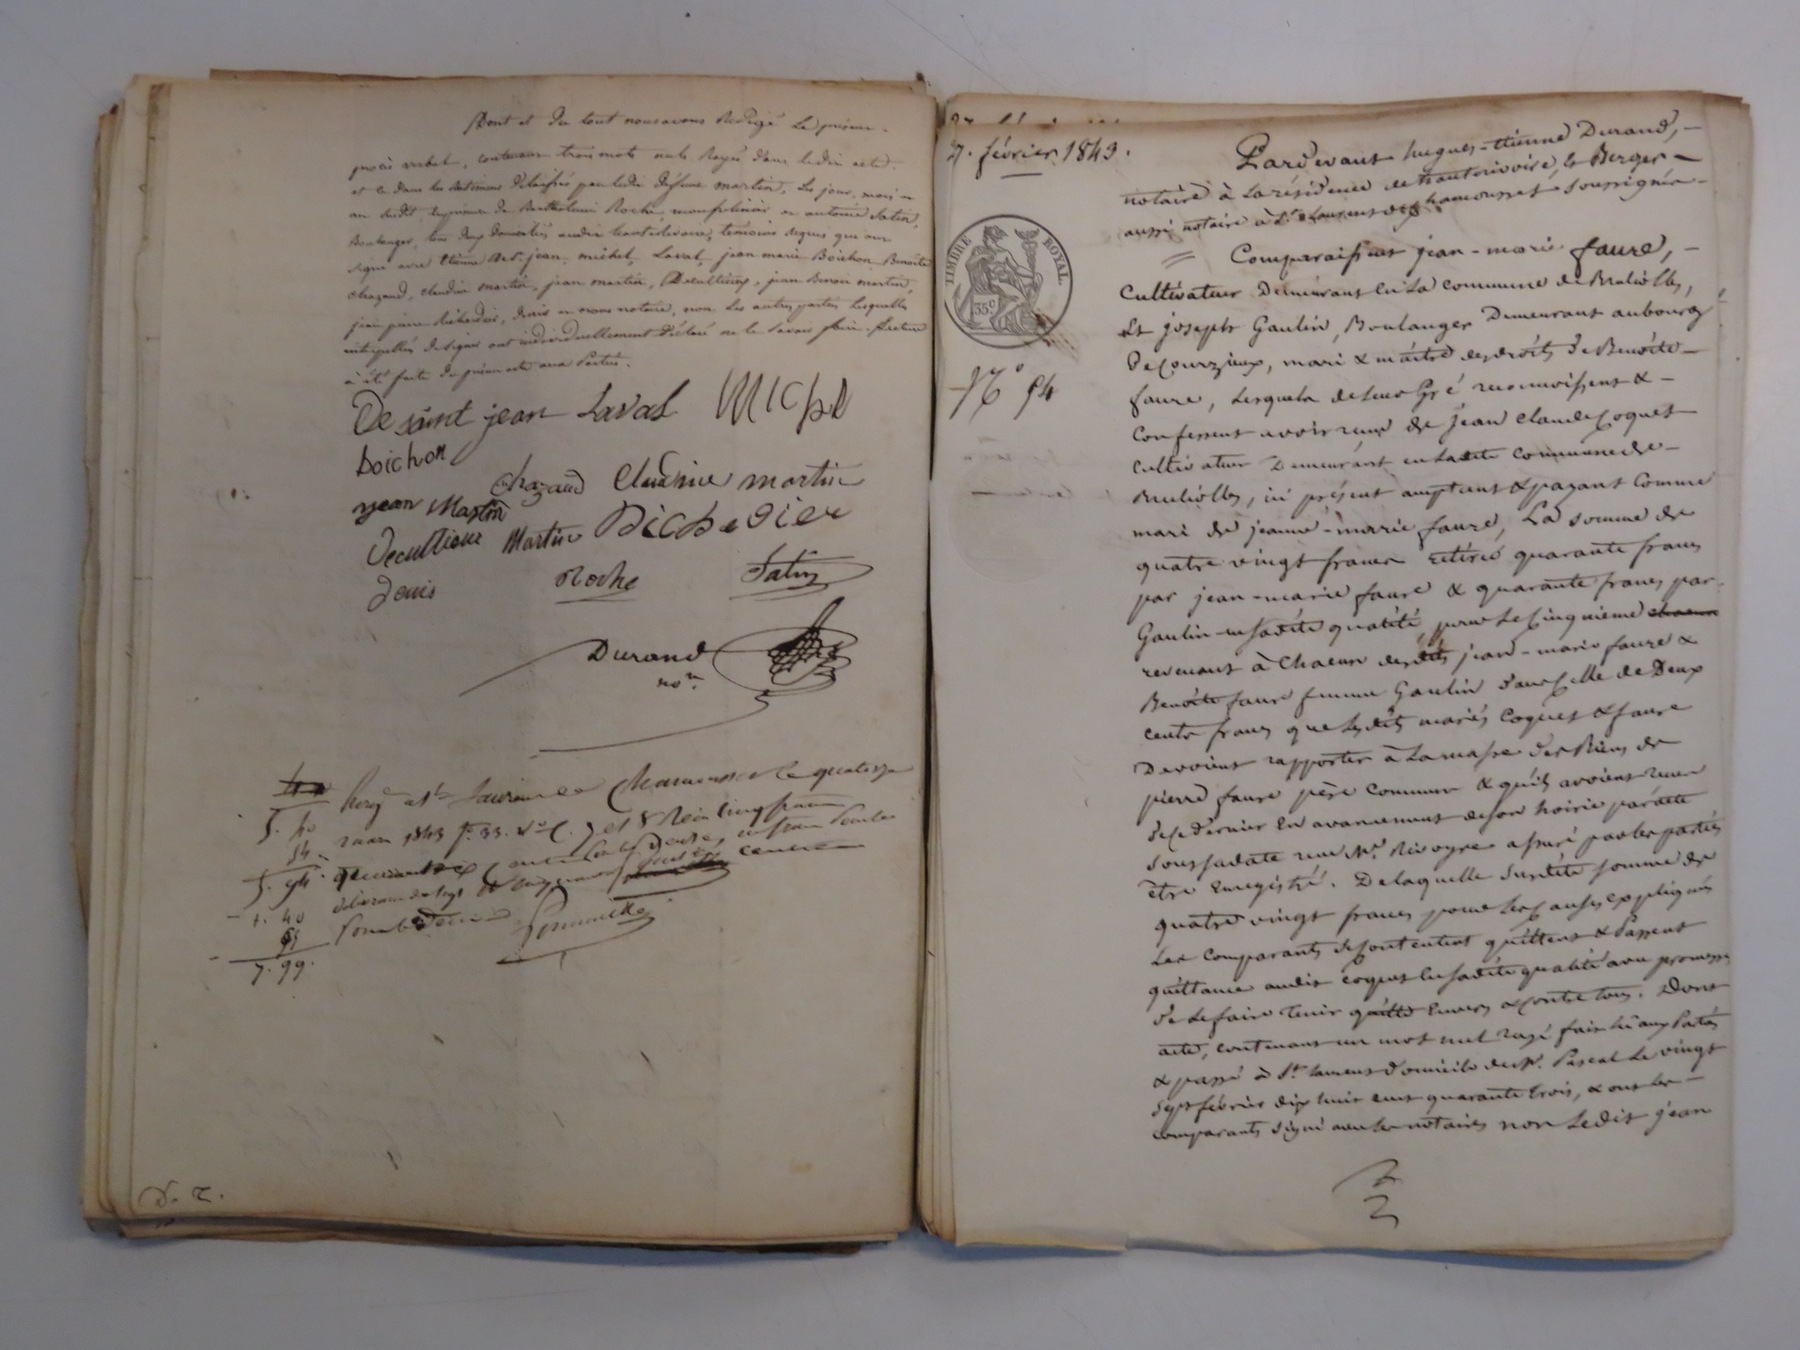 Dont et du tout nous avons Rédigé Le présent
procès verbal, contenant trois mots nuls Rayés dans ledit acte
et le dans les bâtimens délaissés par ledit défunt martin, Les jour, mois et
an susdit En présence de Barthelemi Roche, et antoine Satin,
Boulanger, tous deux domiciliés audit hauterivoire, témoins requis qui ont
signé avec Etienne de St. jean, michel, Laval, jean marie Boichon, Benoite
Chazaud, Claudine martin, jean martin, Decultieux, jean Benoit martin,
jean pierre Richerdier, denis et nous notaire, non Les autres parties Lesquelles
interpellées de signer ont individuellement déclaré ne le Savoir faire. Lecture
à été faite du présent acte aux Parties.
De saint jean Laval MICHEL
boichon
Chazaud Claudine martin
jean Martin
Decultieux Martin Richerdier
denis Roche Satin
Durand
nore.
Enregé à St. Laurent de Chamousset le quatorze
5. 40 mars 1843 fo. 33. Vo. C. 7 et 8 Reçu cinq francs
54
5. 94
1. 40
7. 99.
D. R.
27. février 1843.
TIMBRE ROYAL
35c
No 94
Pardevant hugues-étienne Durand,
notaire à La résidence de hauterivoire, & Berger
aussi notaire à St. Laurent de chamousset soussignés
Comparaissent jean-marie faure,
Cultivateur Demeurant En La commune de Brulioles,
Et joseph Gaulin, Boulanger Demeurant au bourg
De Courzieux, mari & maître des droits de Benoite
faure, Lesquels de Leur Gré reconnoissent &
Confessent avoir reçu de jean Claude Coquet
Cultivateur Demeurant en Ladite commune de
Brulioles, ici présent acceptant & payant Comme
mari de jeanne-marie faure, La somme de
quatre vingt francs retirés quarante francs
par jean-marie faure & quarante francs par
Gaulin en sadite qualité pour Le Cinquième chacun
revenant à Chacun desdits jean-marie faure &
Benoite faure femme Gaulin dans Celle de Deux
cents francs que Lesdits mariés Coquet & faure
Devoient rapporter à La masse des Biens de
pierre faure père commun & qu'ils avoient reçu
de Ce dernier En avancement de son hoirie par acte
sous sa date reçu Me. Rivoyre assuré par les parties
être Enregistré. De laquelle susdite somme de
quatre vingt francs pour Les Causes expliquées
Les Comparants se contentent quittent & Passent
quittance audit Coquet En sadite qualité avec promesse
de Le faire tenir quitte Envers & contre tous. Dont
acte, contenant un mot nul rayé fait lu aux Parties
& passé à St. Laurent Domicile du Sr. Pascal Le vingt
Sept février dix huit cent quarante trois, & ont Les
comparants signé avec Les notaires non Ledit jean